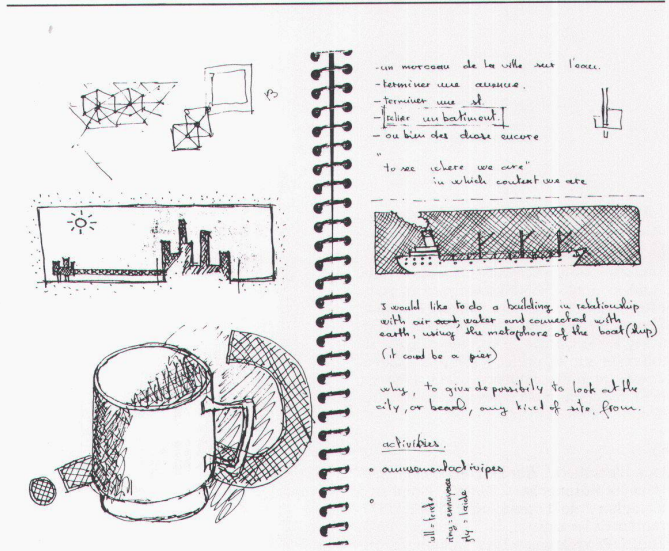 -un morceau de la ville sur l'eau.
-terminer une avenue.
-terminer une st.
-relier un batiment.
- ou bien des chose encore
"to see where we are"
in which context we are
I would like to do a building in relationship
with air and, water and connected with
earth, using the metaphore of the boat (ship)
(it coud be a pier)
why, to give de possibily to look at the
city, or beach, any kind of site, from.
activities.
• amusementactivipes
•